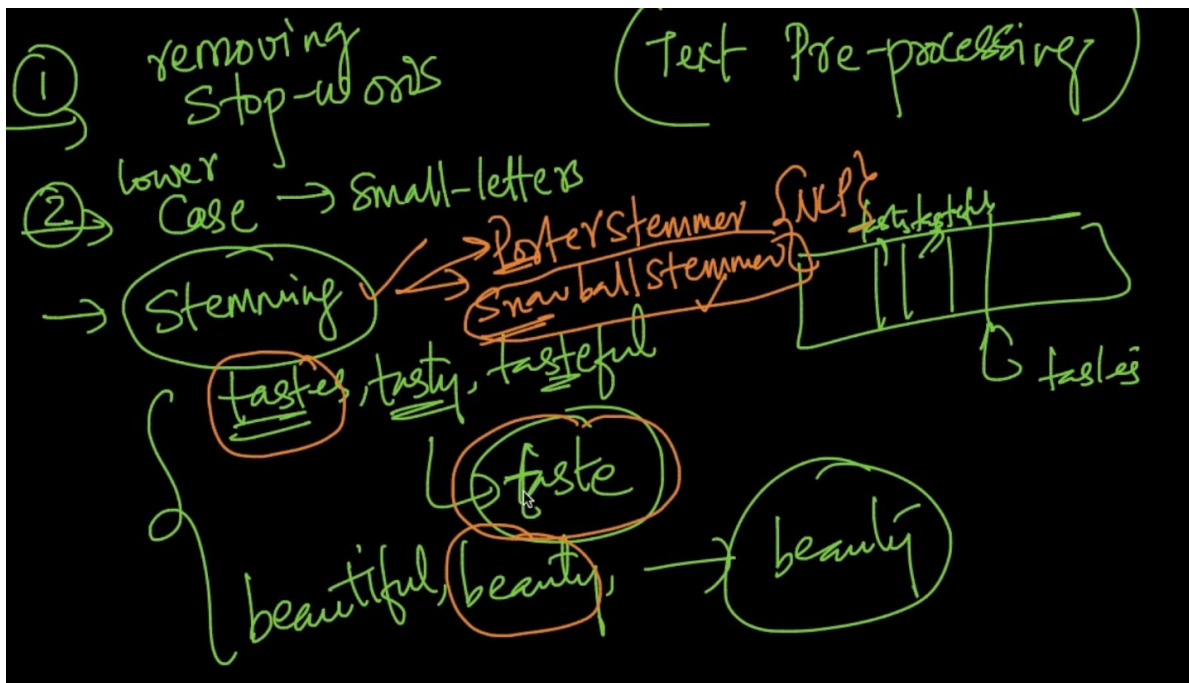 1 removing
Stop-words
Text Pre-processing
2 Lower
Case → Small-letters
→ Stemming
→ PorterStemmer {NLP}
→ SnowballStemmer
tastes, tasty, tasteful
tastes
taste
beautiful, beauty, → beauty